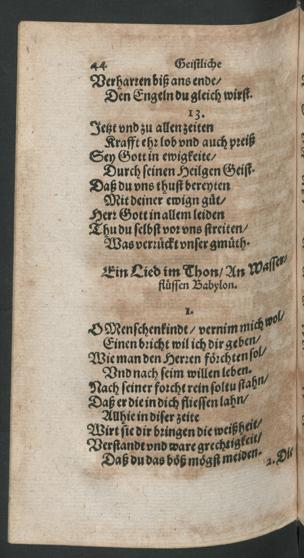 44 Geistliche
Verharren biß ans ende/
Den Engeln du gleich wirst.
13.
Jetzt vnd zu allen zeiten
Krafft ehr lob vnd auch preiß
Sey Gott in ewigkeite/
Durch seinen Heilgen Geist.
Daß du vns thust bereyten
Mit deiner ewign güt/
Herr Gott in allem leiden
Thu du selbst vor vns streiten/
Was verrückt vnser gmüth.
Ein Lied im Thon/ An Wasser/
flüssen Babylon.
1.
O Menschenkindt/ vernim mich wol/
Einen bricht wil ich dir geben/
Wie man den Herren förchten sol/
Vnd nach seim willen leben.
Nach seiner forcht rein soltu stahn/
Daß er die in dich fliessen lahn/
Allhie in diser zeite
Wirt sie dir bringen die weißheit/
Verstandt vnd ware grechtigkeit/
Daß du das böß mögst meiden.
2. Die